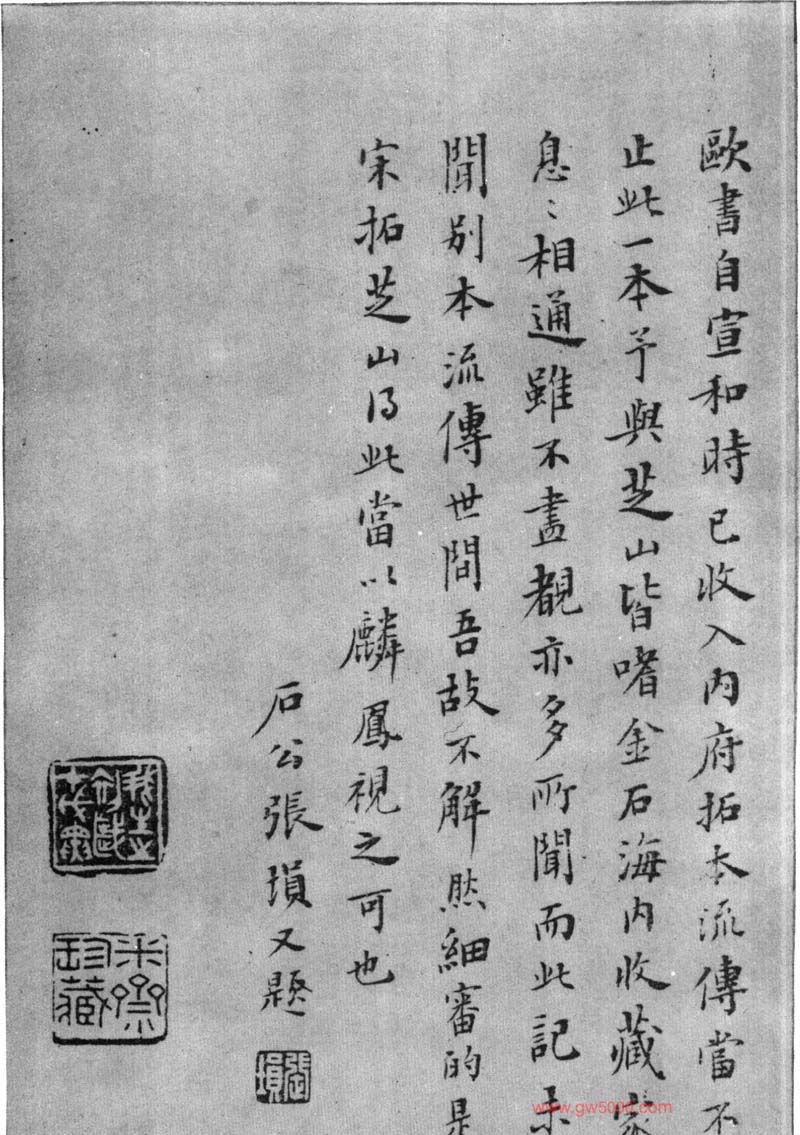 歐書自宣和時已收入內府拓本流傳當不
止此一本予與芝山皆嗜金石海內收藏家
息〻相通雖不盡覩亦多所聞而此記未
聞別本流傳世間吾故不解然細審的是
宋拓芝山得此當以麟鳳視之可也
石公張塤又題
張塤
珍藏
www.gw5000.com